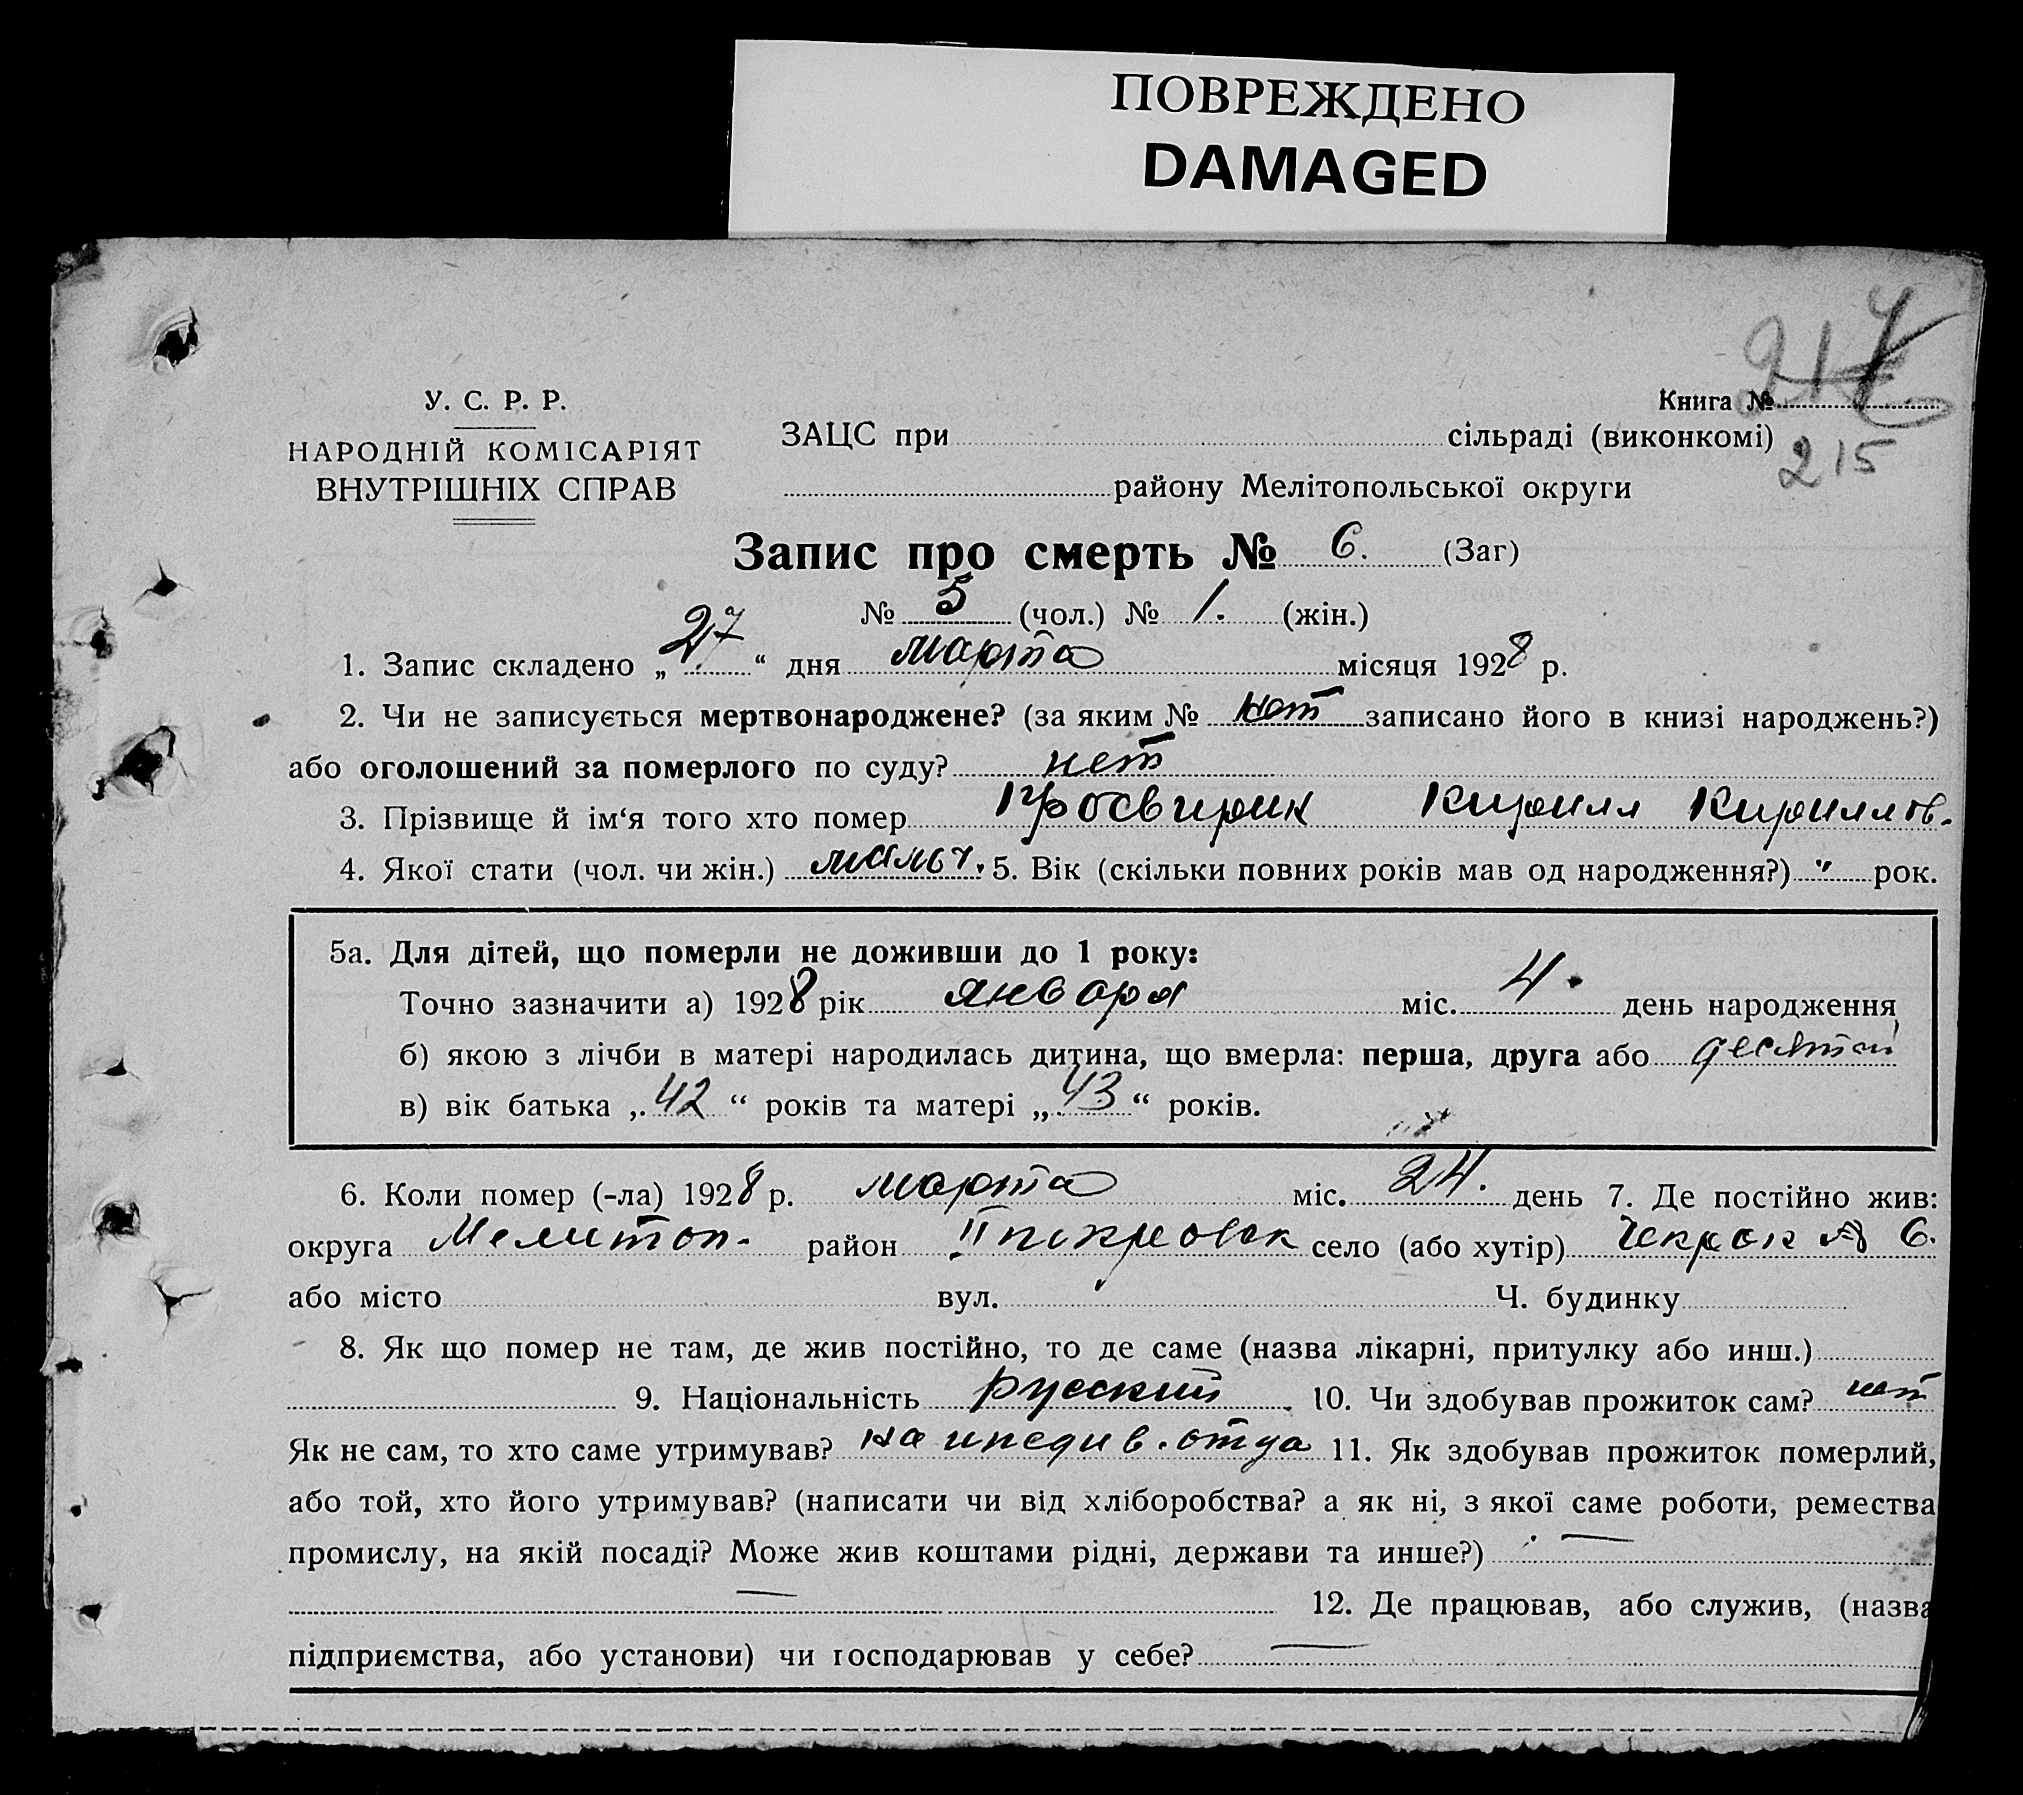 ПОВРЕЖДЕНО
DAMAGED
217
У. С. Р. Р.
НАРОДНІЙ КОМІСАРІЯТ
ВНУТРІШНІХ СПРАВ
Книга №
ЗАЦС при сільраді (виконкомі)
215
району Мелітопольської округи
Запис про смерть № 6. (Заг)
№ 5 (чол.) № 1. (жін.)
1. Запис складено „27“ дня марта місяця 1928 р.
2. Чи не записується мертвонароджене? (за яким № нет записано його в книзі народжень?)
або оголошений за померлого по суду? нет
3. Прізвище й ім‘я того хто помер Просвирик Кирилл Кириллов.
4. Якої стати (чол. чи жін.) мальч. 5. Вік (скільки повних років мав од народження?) " рок.
5а. Для дітей, що померли не доживши до 1 року:
Точно зазначити а) 1928 рік января міс. 4. день народження
б) якою з лічби в матері народилась дитина, що вмерла: перша, друга або десятий
в) вік батька „42“ років та матері „43“ років.
6. Коли помер (-ла) 1928 р. марта міс. 24. день 7. Де постійно жив:
округа Мелитоп. район II покровск село (або хутір) Чекрак № 6.
або місто вул. Ч. будинку
8. Як що помер не там, де жив постійно, то де саме (назва лікарні, притулку або инш.)
9. Національність русский. 10. Чи здобував прожиток сам? нет
Як не сам, то хто саме утримував? на иждив. отца 11. Як здобував прожиток померлий,
або той, хто його утримував? (написати чи від хліборобства? а як ні, з якої саме роботи, ремества
промислу, на якій посаді? Може жив коштами рідні, держави та инше?) —
— 12. Де працював, або служив, (назва
підприємства, або установи) чи господарював у себе? —